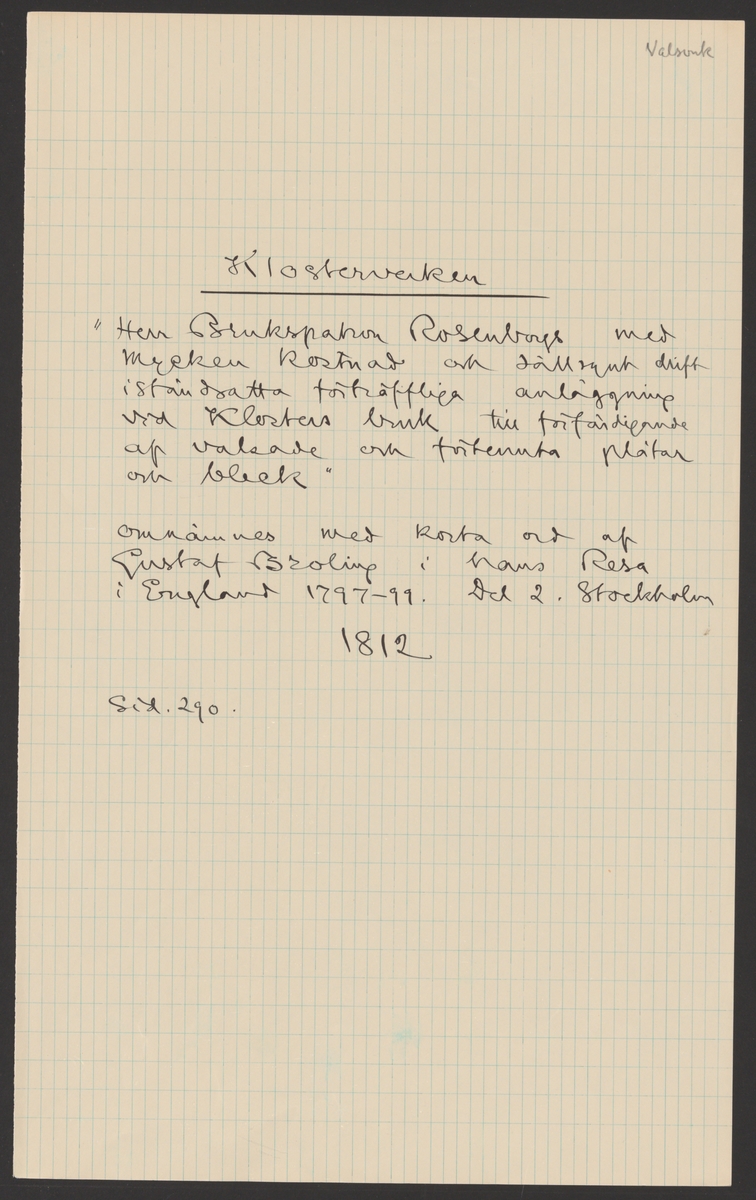 Valsverk
Klosterverken
"Herr Brukspatron Rosenborgs med
mycken kostnad och sällsynt drift
iståndsatta förträffliga anläggning
vid Klosters bruk till förfärdigande
af valsade och förtennta plåtar
och bleck"
omnämnes med korta ord af
Gustaf Broling i hans Resa
i England 1797-99. Del 2. Stockholm
1812
Sid. 290.